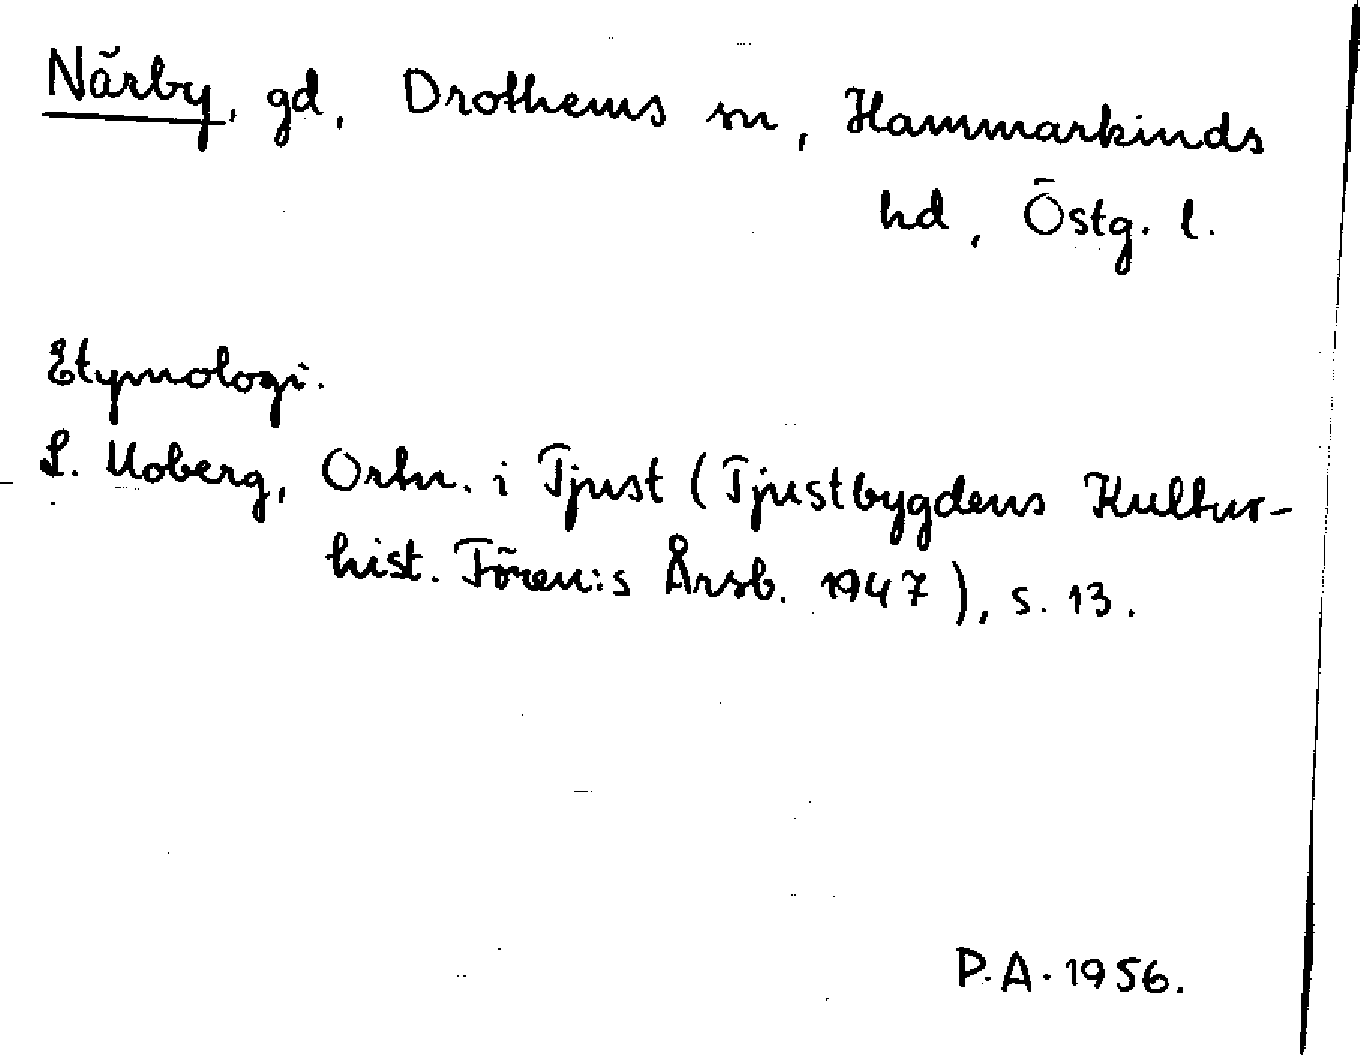 Närby, gd, Drothems sn, Hammarkinds
hd, Östg. l.
Etymologi.
L. Moberg, Ortn. i Tjust (Tjustbygdens Kultur-
hist. Fören:s Årsb. 1947), s. 13.
P.A. 1956.